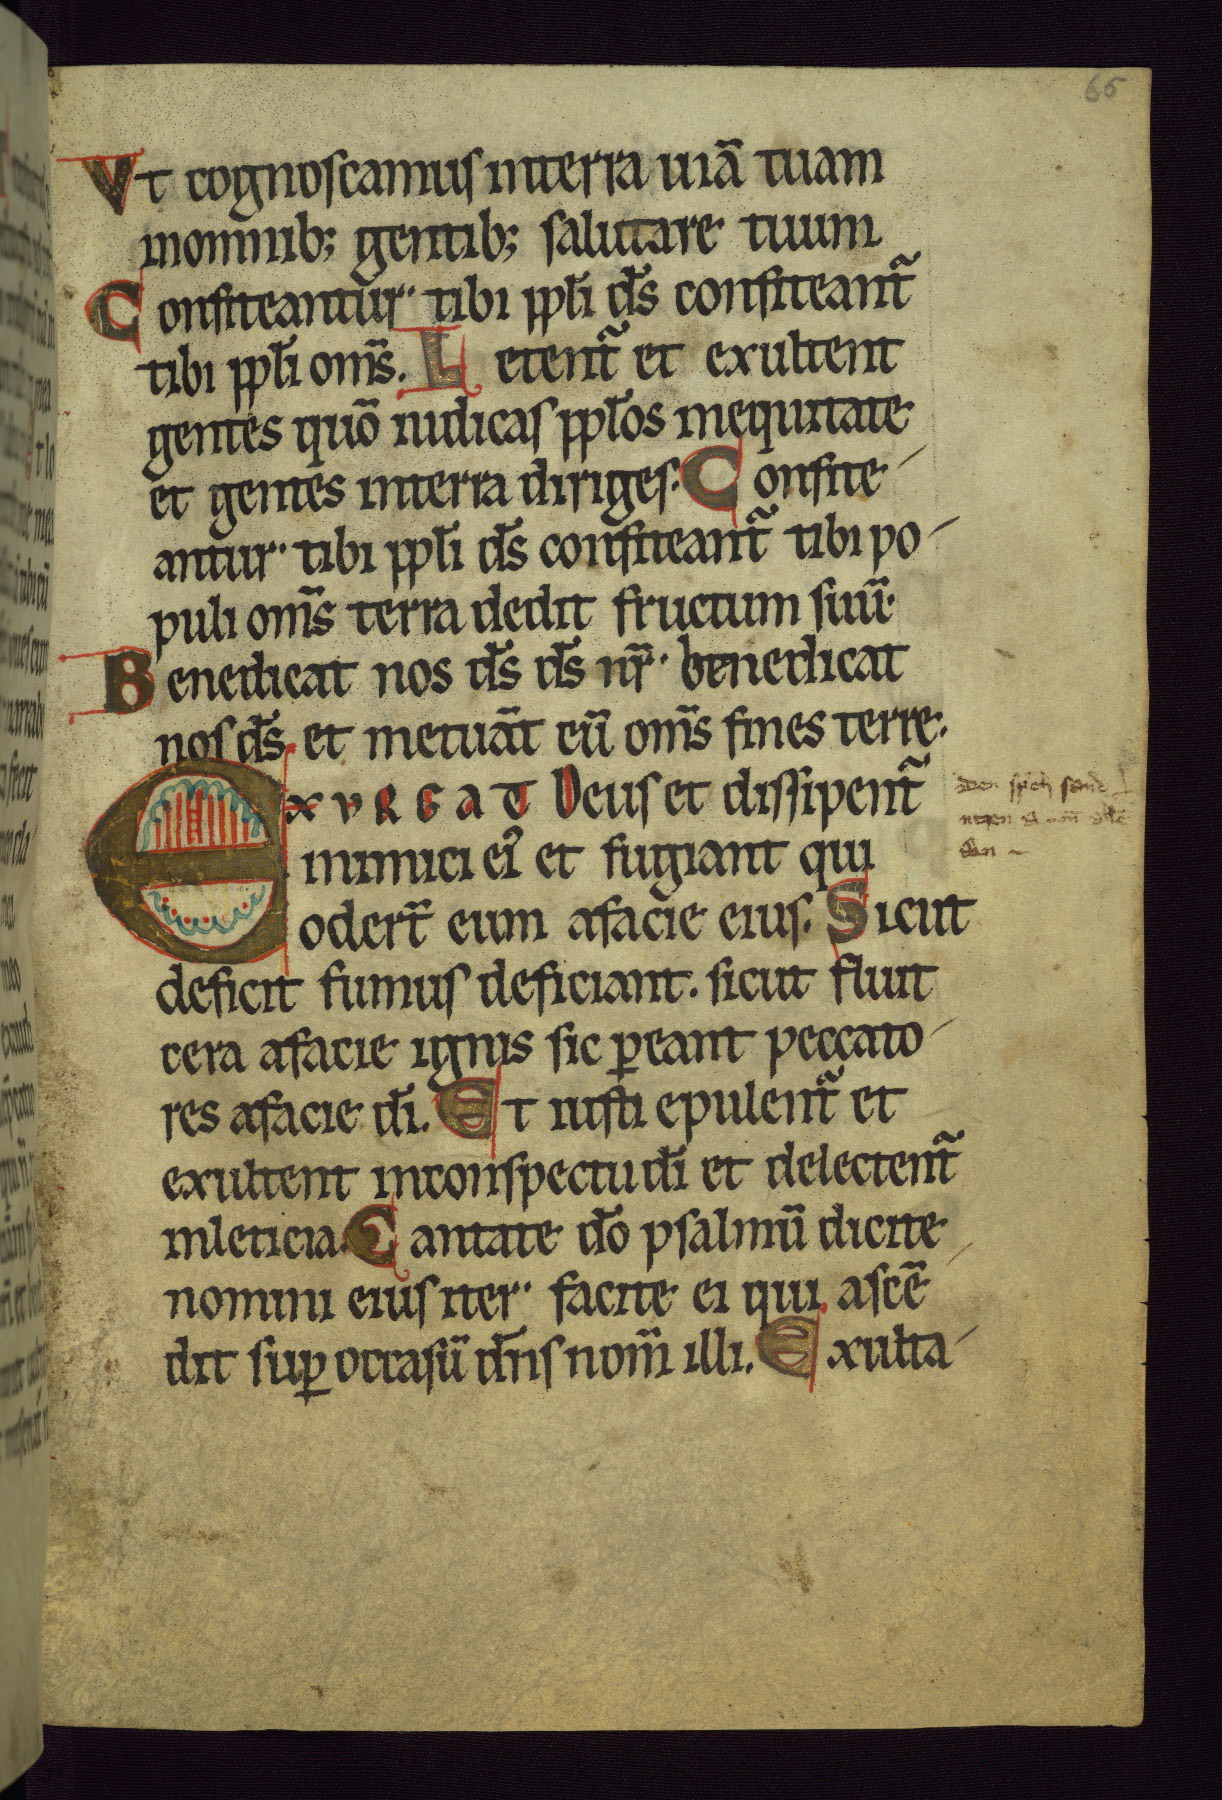 66
Vt cognoscamus interra uiā tuam
inomnib; gentib; salutare tuum
Confiteantur tibi ppl̄i d̄s confiteant᷑
tibi ppl̄i om̄s. Letent᷑ et exultent
gentes quō iudicas ppl̄os inequitate
et gentes interra diriges. Confite
antur tibi ppl̄i d̄s confiteant᷑ tibi po-
puli om̄s terra dedit fructum suū.
Benedicat nos d̄s d̄s nr̄ benedicat
nos d̄s et metuāt eū om̄s fines terre.
EXVRGAT Deus et dissipent᷑
inimici ei᷒ et fugiant qui
odert̄ eum afacie eius. Sicut
deficit fumus deficiant. sicut fluit
cera afacie ignis sic ꝑeant peccato-
res afacie dī. Et iusti epulent᷑ et
exultent inconspectu dī et delectent᷑
inleticia. Cantate dō psalmū dicite
nomini eius iter facite ei qui ascē
dit suꝑ occasū dn̄s nom̄ illi. Exulta-